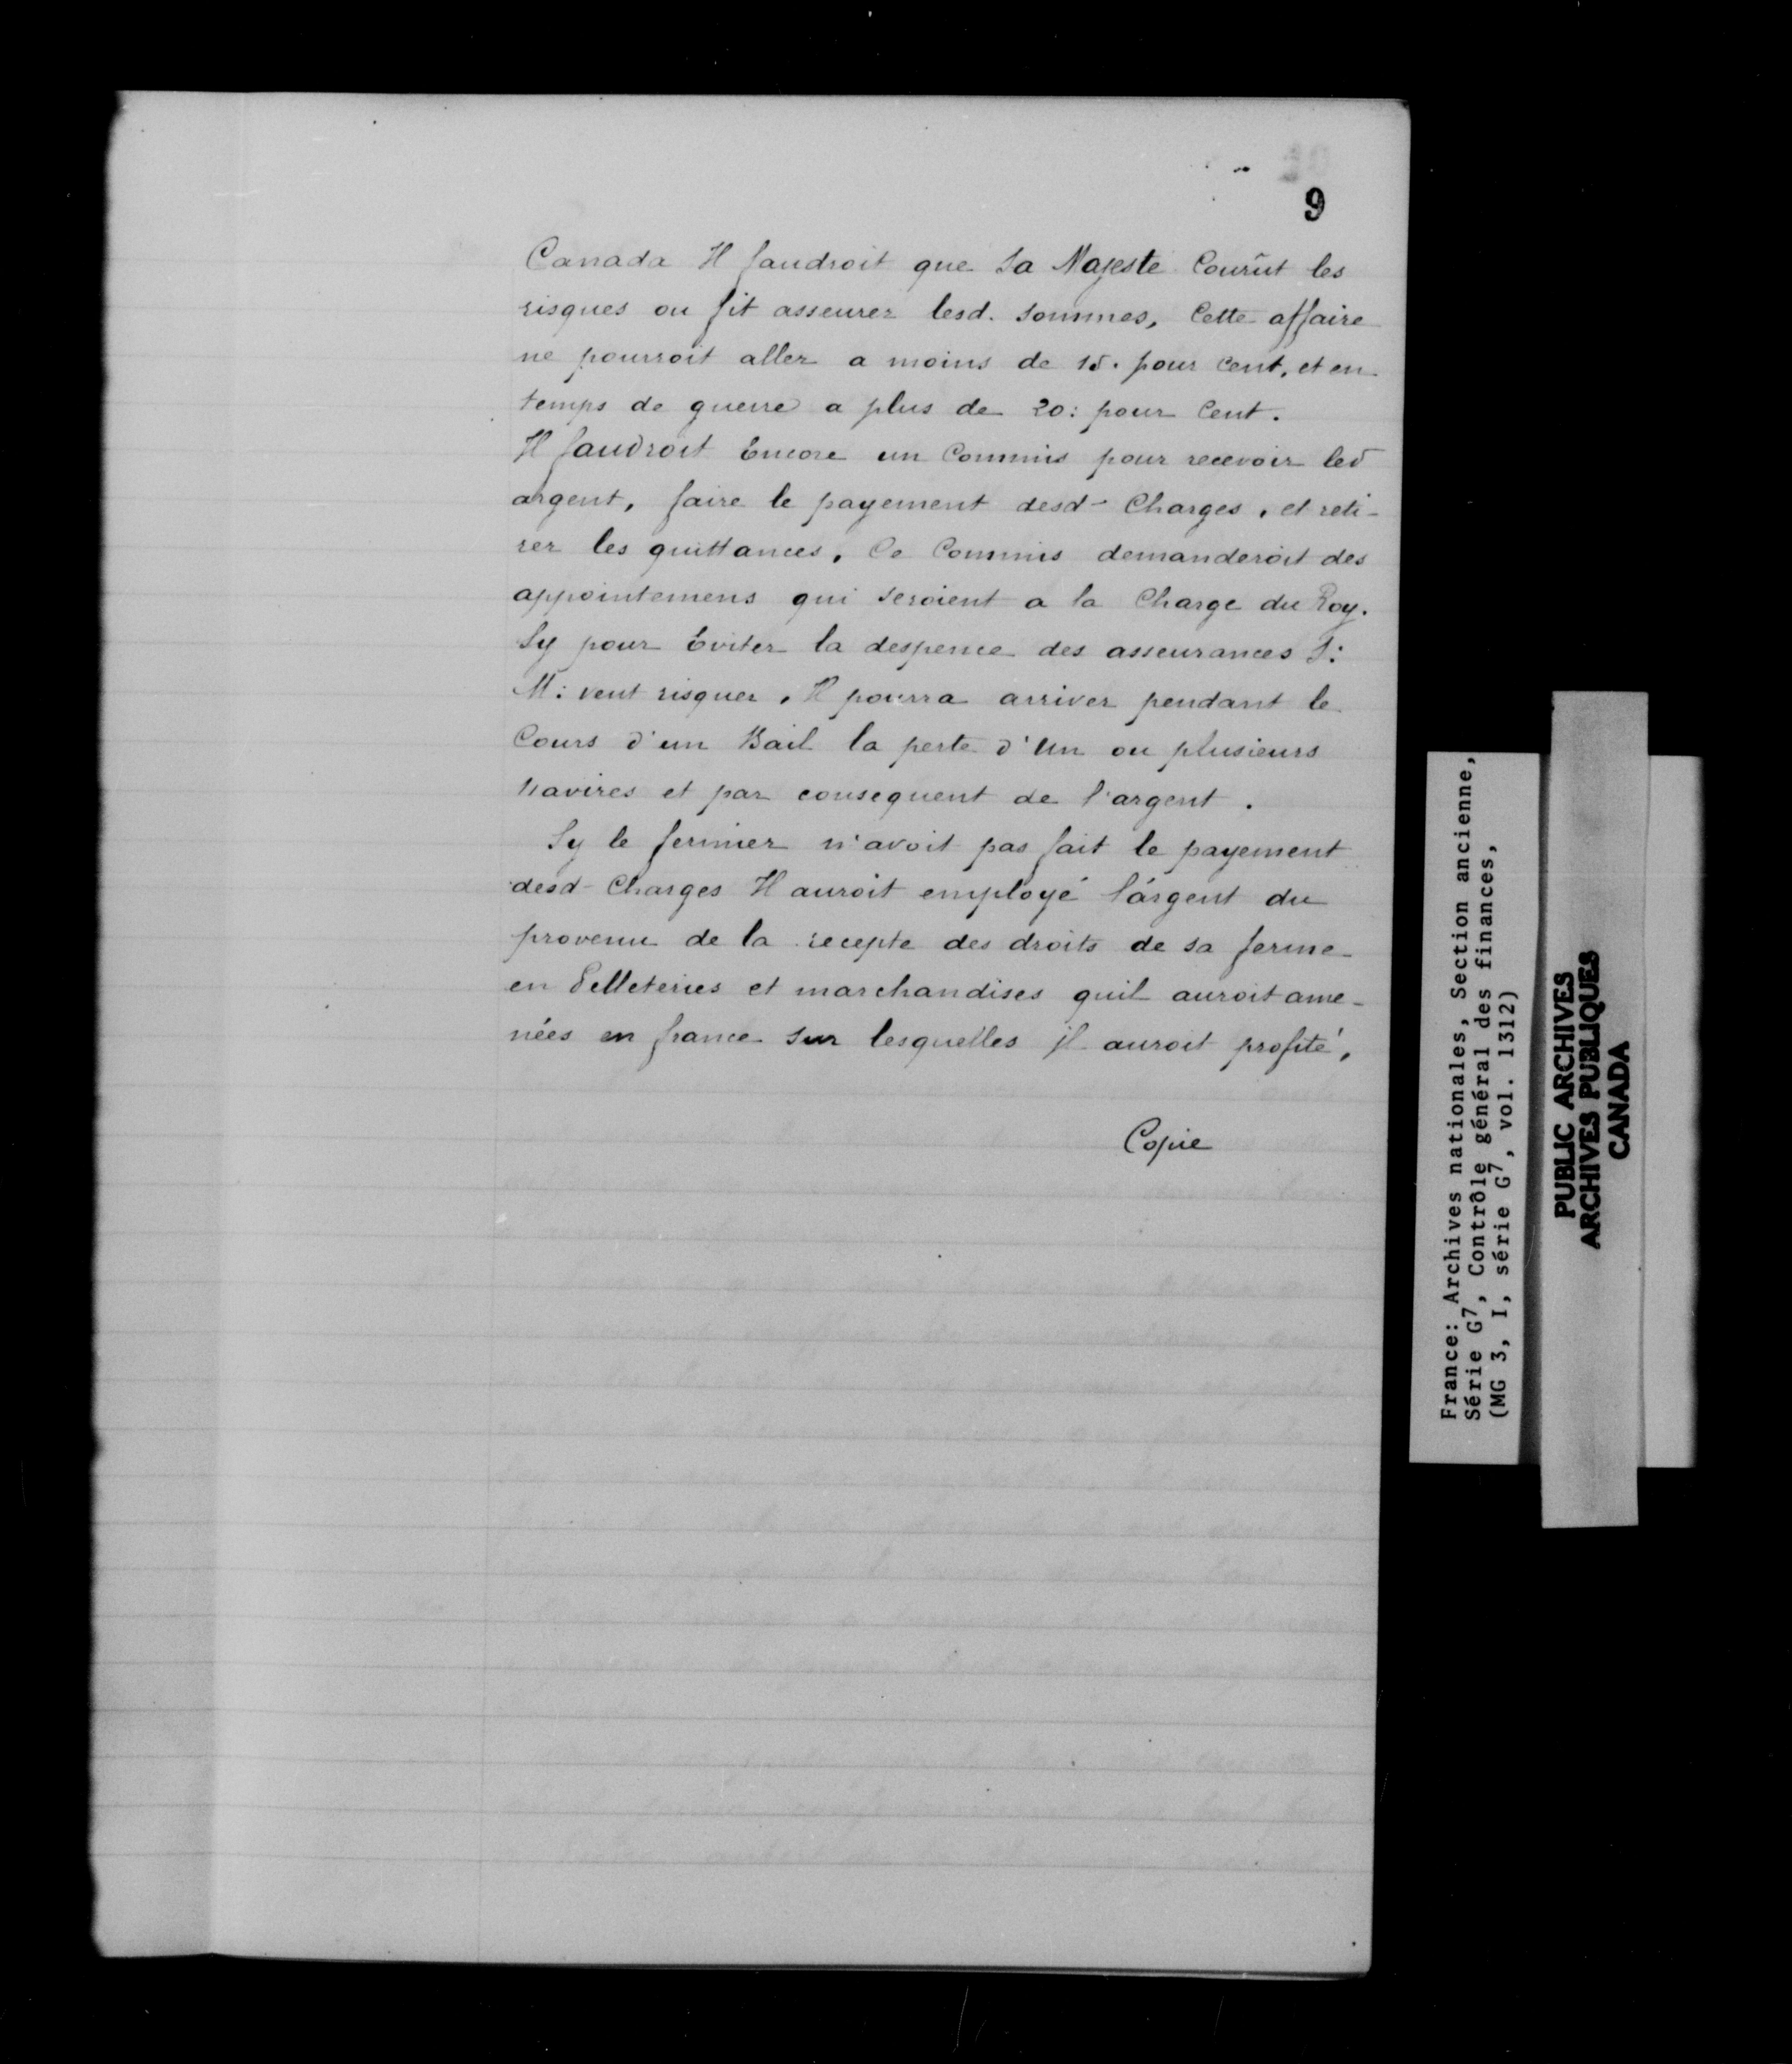 9
Canada Il faudroit que Sa Majesté Courût les
risques ou fit asseurer lesd. sommes, Cette affaire
ne pourroit aller a moins de 15. pour Cent, et en
temps de guerre a plus de 20: pour Cent.
Il faudroit Encore un Commis pour recevoir led
argent, faire le payement desd- Charges, et reti-
rer les quittances, Ce Commis demanderoit des
appointemens qui seroient a la Charge du Roy.
Sy pour Eviter la despence des asseurances S:
M: veut risquer, Il pourra arriver pendant le
Cours d'un Bail la perte d'Un ou plusieurs
navires et par consequent de l'argent.
Sy le fermier n'avoit pas fait le payement
desd- Charges Il auroit employé l'argent du
provenu de la recepte des droits de sa ferme
en Pelleteries et marchandises quil auroit ame-
nées en france sur lesquelles il auroit profité,
Copie
France: Archives nationales, Section ancienne,
Série G7, Contrôle général des finances,
(MG 3, I, série G7, vol. 1312)
PUBLIC ARCHIVES
ARCHIVES PUBLIQUES
CANADA